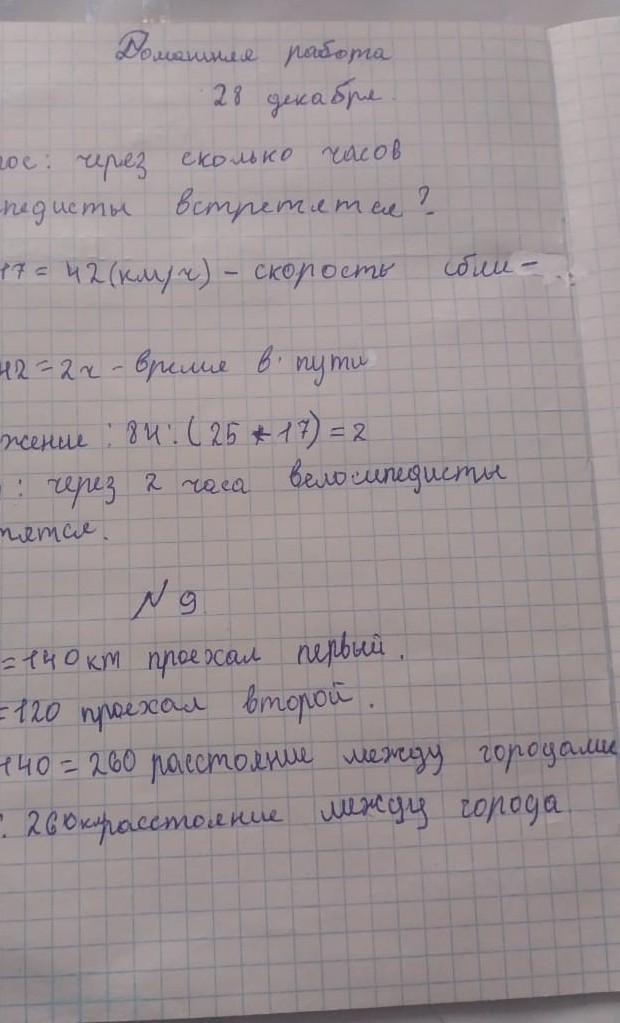 Домашняя работа
28 декабря.
ос: через сколько часов
педисты встретятся?
17 = 42 (км/ч) - скорость сбли-
42 = 2 ч - время в пути
жение: 84:(25+17) = 2
: через 2 часа велосипедисты
тятся.
N 9
= 140 км проехал первый.
= 120 проехал второй.
140 = 260 расстояние между городами
: 260км расстояние между города